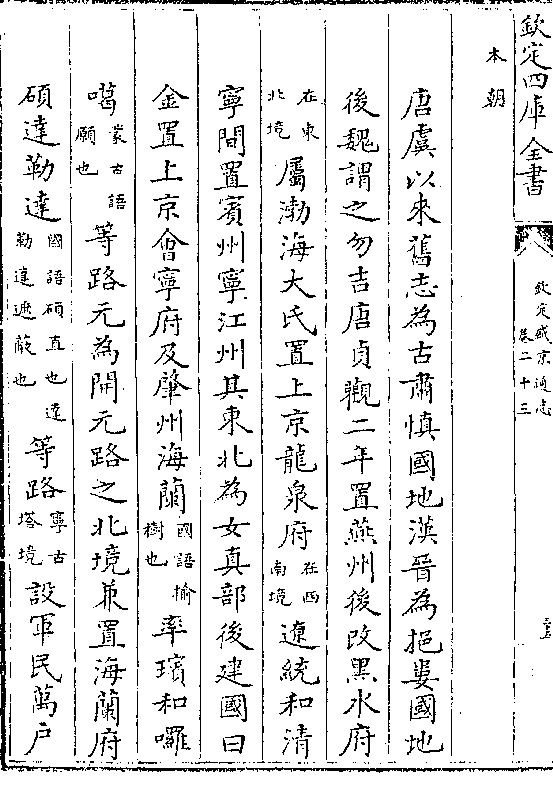 欽定四庫全書
欽定盛京通志
卷二十三
本朝
唐虞以來舊志為古肅慎國地漢晉為挹婁國地
後魏謂之勿吉唐貞觀二年置燕州後改黑水府
在東北境屬渤海大氏置上京龍泉府在西南境遼統和清
寧間置賓州寧江州其東北為女真部後建國曰
金置上京會寧府及肇州海蘭國語榆樹也率璸和囉
噶蒙古語願也等路元為開元路之北境兼置海蘭府
碩達勒達國語碩直也達勒達遮蔽也等路寧古塔境設軍民萬户